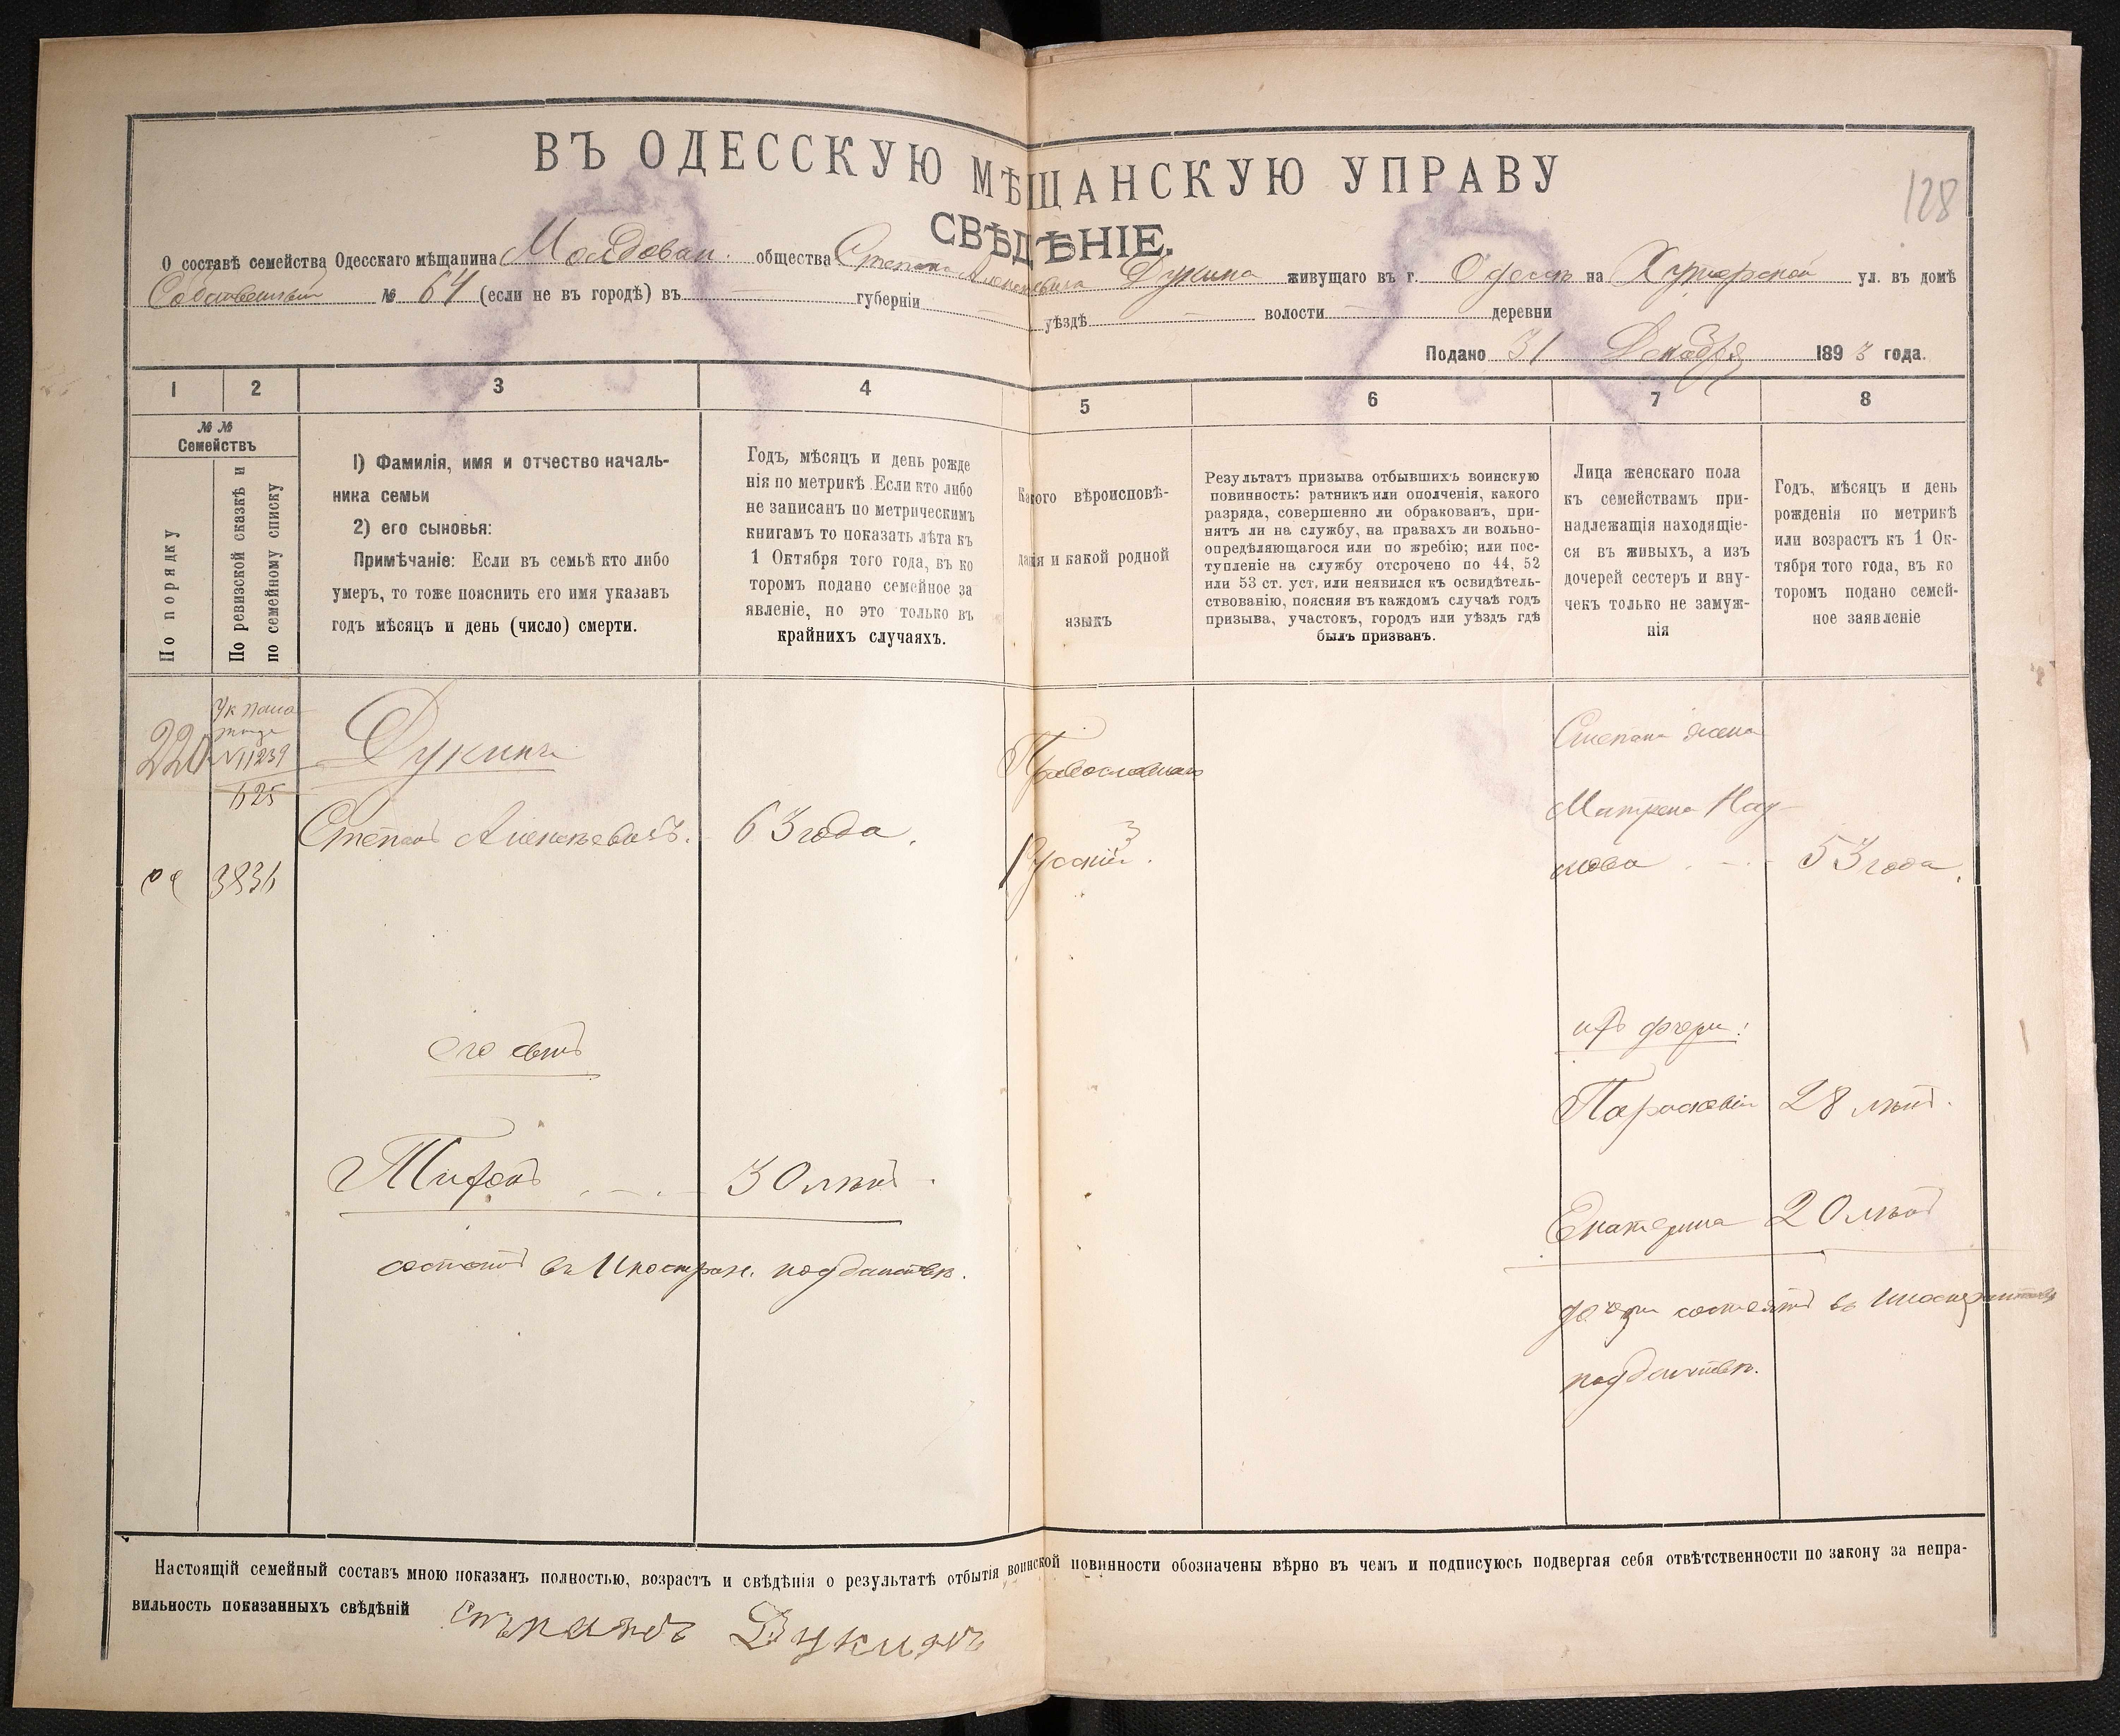 128
ВЪ ОДЕССКУЮ МѢЩАНСКУЮ УПРАВУ
СВѢДѢНІЕ.
О составѣ семейства Одесскаго мѣщанина Молдован. общества Степана Алексѣевича Дукина живущаго въ г. Одессѣ на Хуторской ул. въ домѣ
Собственный № 64 (если не въ городѣ) въ — губерніи — уѣздѣ — волости — деревни
Подано 31 Декабря 1893 года.
1 2 3 4 5 6 7 8
№ № Семействъ
По порядку
По ревизской сказкѣ и по семейному списку
1) Фамилія, имя и отчество началь-
ника семьи
2) его сыновья:
Примѣчаніе: Если въ семьѣ кто либо
умеръ, то тоже пояснить его имя указавъ
годъ мѣсяцъ и день (число) смерти.
Годъ, мѣсяцъ и день рожде
нія по метрикѣ Если кто либо
не записанъ по метрическимъ
книгамъ то показать лѣта къ
1 Октября того года, въ ко
торомъ подано семейное за
явленіе, но это только въ
крайнихъ случаяхъ.
Какого вѣроисповѣ-
данія и какой родной
языкъ
Результатъ призыва отбывшихъ воинскую
повинность: ратникъ или ополченія, какого
разряда, совершенно ли обракованъ, при-
нятъ ли на службу, на правахъ ли вольно-
опредѣляющагося или по жребію; или пос-
тупленіе на службу отсрочено по 44, 52
или 53 ст. уст. или неявился къ освидѣтель-
ствованію, поясняя въ каждомъ случаѣ годъ
призыва, участокъ, городъ или уѣздъ гдѣ
былъ призванъ.
Лица женскаго пола
къ семействамъ при-
надлежащія находящіе-
ся въ живыхъ, а изъ
дочерей сестеръ и вну-
чекъ только не замуж-
нія
Годъ, мѣсяцъ и день
рожденія по метрикѣ
или возрастъ къ 1 Ок-
тября того года, въ ко
торомъ подано семей-
ное заявленіе
220
№11239
625
3831
Дукинъ
Степанъ Алексѣевичъ. 63 года.
Православнаго
Русскій.
Степана жена
Матрена
53 года.
его сынъ
Тифонъ 30 лѣтъ.
состоитъ въ Иностран. подданствѣ.
ихъ дочери:
Парасковія 28 лѣтъ.
Екатерина 20 лѣтъ
дочери состоятъ въ
подданствѣ.
Настоящій семейный составъ мною показанъ полностью, возрастъ и свѣдѣнія о результатѣ отбытія воинской повинности обозначены вѣрно въ чемъ и подписуюсь подвергая себя отвѣтственности по закону за непра-
вильность показанныхъ свѣдѣній Стѣпанъ Дукинъ